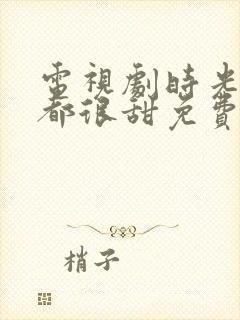 電視劇時光
都很甜免費
梢子